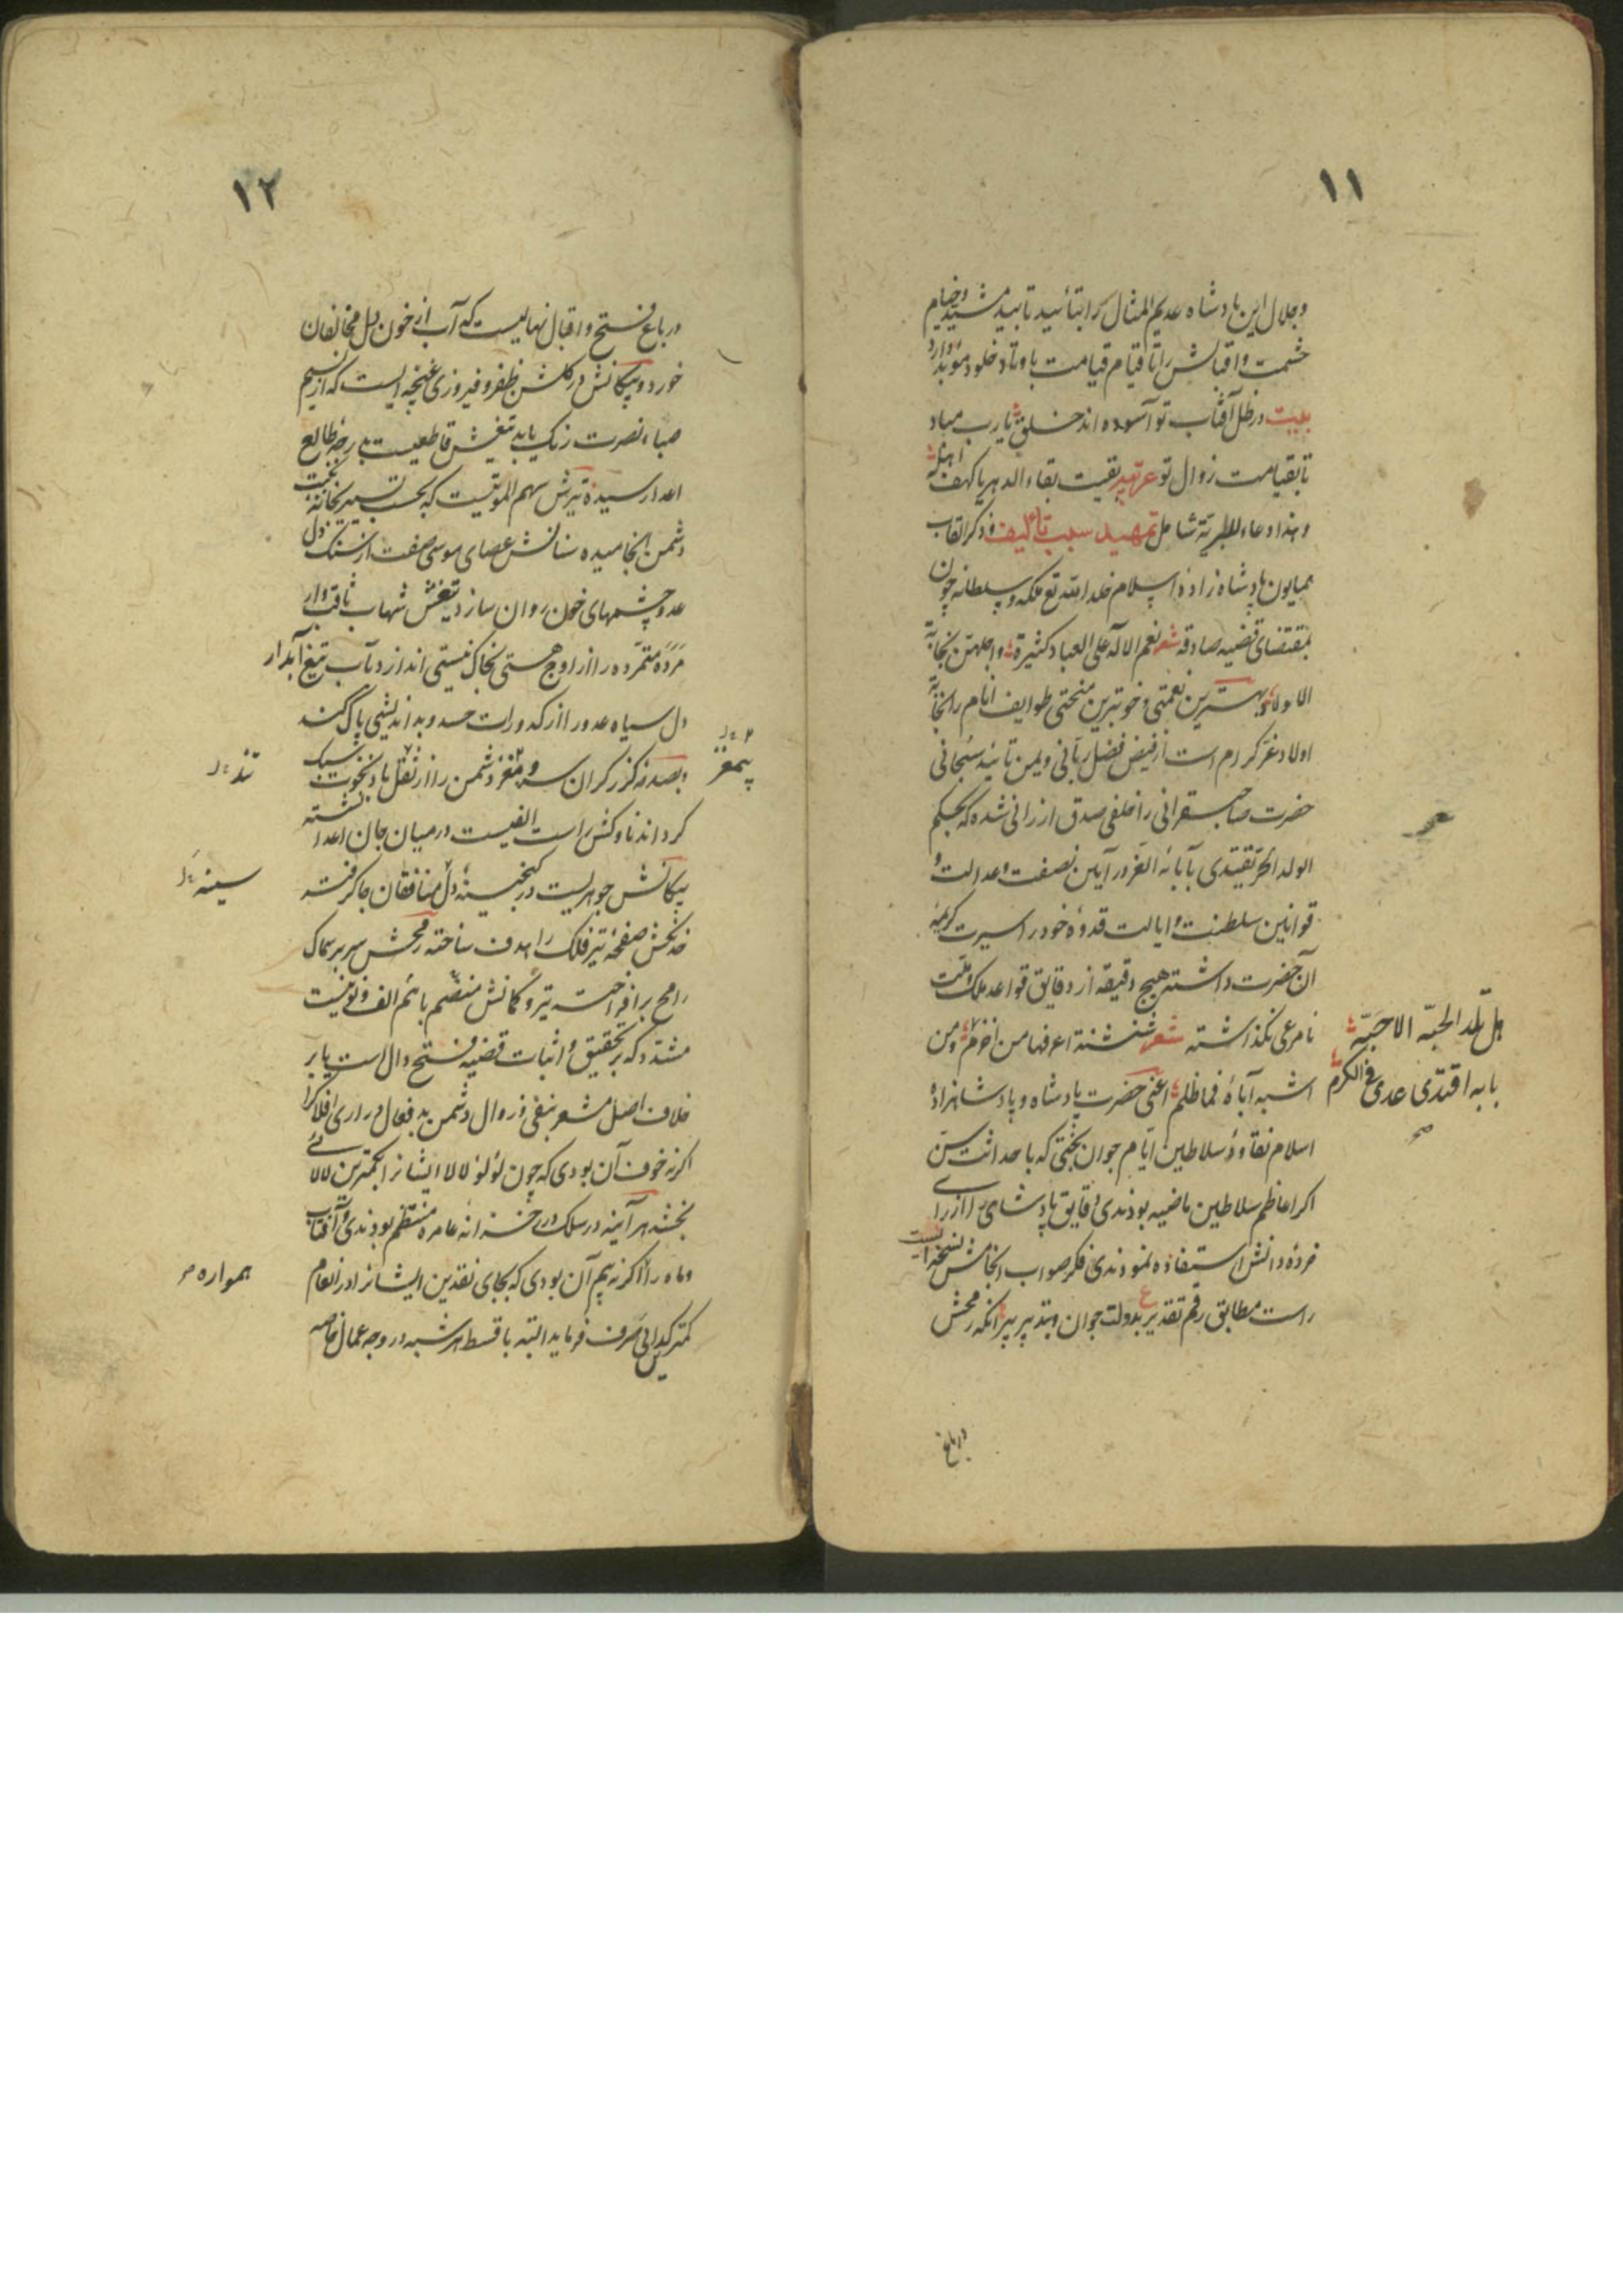 ۱۱
وجلال این پادشاه عدیم المثال را بتائید تابید مشید وخیام
حشمت واقبالش را تا قیام قیامت باوتاد خلود مؤبد داراد
بیت در ظل آفتاب تو آسوده اند خلق یارب مباد
تا بقیامت زوال تو عربیه بقیت بقاء الدهر یا کهف اهله
وهذا دعاء للبریّة شامل تمهید سبب تألیف و ذکر القاب
همایون پادشاه زاده اسلام خلد الله تع ملکه وسلطانه چون
بمقتضای قضیه صادقه شعر نعم الاله علی العباد کثیرة واجلهنّ نجابة
الاولاد بهترین نعمتی و خوبترین منحتی طوایف انام را نجابة
اولاد غرّ کرام است از فیض فضل ربّانی ویمن تائید سبحانی
حضرت صاحبقرانی را خلفی صدق ارزانی شده که بحکم
الولد الحرّ یقتدی بآبائه الغرّ در آیین نصفت و عدالت و
قوانین سلطنت و ایالت قدوهٔ خود را سیرت کریمه
آن حضرت داشته هیچ دقیقه از دقایق قواعد ملک و ملّت
نامرعی نگذاشته شعر شنشنة اعرفها من اخزم ومن
اشبه آباهٔ فما ظلم اعنی حضرت پادشاه و پادشاهزادهٔ
اسلام نقاوهٔ سلاطین ایّام جوان بختی که با حداثت سنّ
اکر اعاظم سلاطین ماضیه بودندی دقایق پادشاهی را از رای
خرده دانش استفاده نمودندی فکر صواب انجامش نسخه ایست
راست مطابق رقم تقدیر ع بدولت جوان وبتدبیر پیر انکه رمحش
هل تلد الحیّة الا حیّة
بابه اقتدی عدی فی الکرم
صح
در باغ
۱۲
در باغ فتح و اقبال نهالیست که آب از خون دل مخالفان
خورد و پیکانش در کلشن ظفر و فیروزی غنچه ایست که از نسیم
صباء نصرت رنک یابد تیغش قاطعیست بدرجهٔ طالع
اعدا رسیده تیرش سهم الموتیست که بحسب تسییر بخانهٔ بخت
دشمن انجامیده سنانش عصای موسی صفت از سنک دل
عدو چشمهای خون روان سازد تیغش شهاب ثاقب وار
مردهٔ متمرّده را از اوج هستی بخاک نیستی اندازد بآب تیغ آبدار
دل سیاه عدو را از کدورات حسد و بداندیشی پاک کند
و بصدمهٔ کرز کران سر و مغز دشمن را از ثقل باد نخوت سبک
کرداند ناوکش راست الفیست در میان جان اعدا نشسته
پیکانش جوهریست در کنجینهٔ دل منافقان جا کرفته
خدنکش صفحهٔ تیر فلک را هدف ساخته رمحش سر بر سماک
رامح برافراخته تیر و کمانش منضّم باهم الف و نونیست
مشدّد که بر تحقیق و اثبات قضیه فتح دال است یا بر
خلاف اصل مشعر بنفی و زوال دشمن بدفعال دراری افلاک را
اکر نه خوف آن بودی که چون لؤلؤ لالا ایشانرا بکمترین لالائی
بخشد هر آینه در سلک درر خزانه عامره منتظم بودندی و آفتاب
و ماه را اکر نه بیم آن بودی که بجای نقدین ایشانرا در انعام
کمتر کدایی صرف فرماید البته باقساط هر شبه در وجه عمال خاصه
بیمغز
تند
سینه
همواره